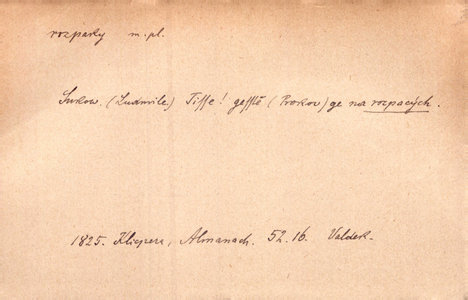 rozpaky m. pl.
Sukow. (Ludmile.) Tisse! gesstě (Prokov) ge na rozpacých.
1825. Klicpera, Almanach. 52.16. Valdek.